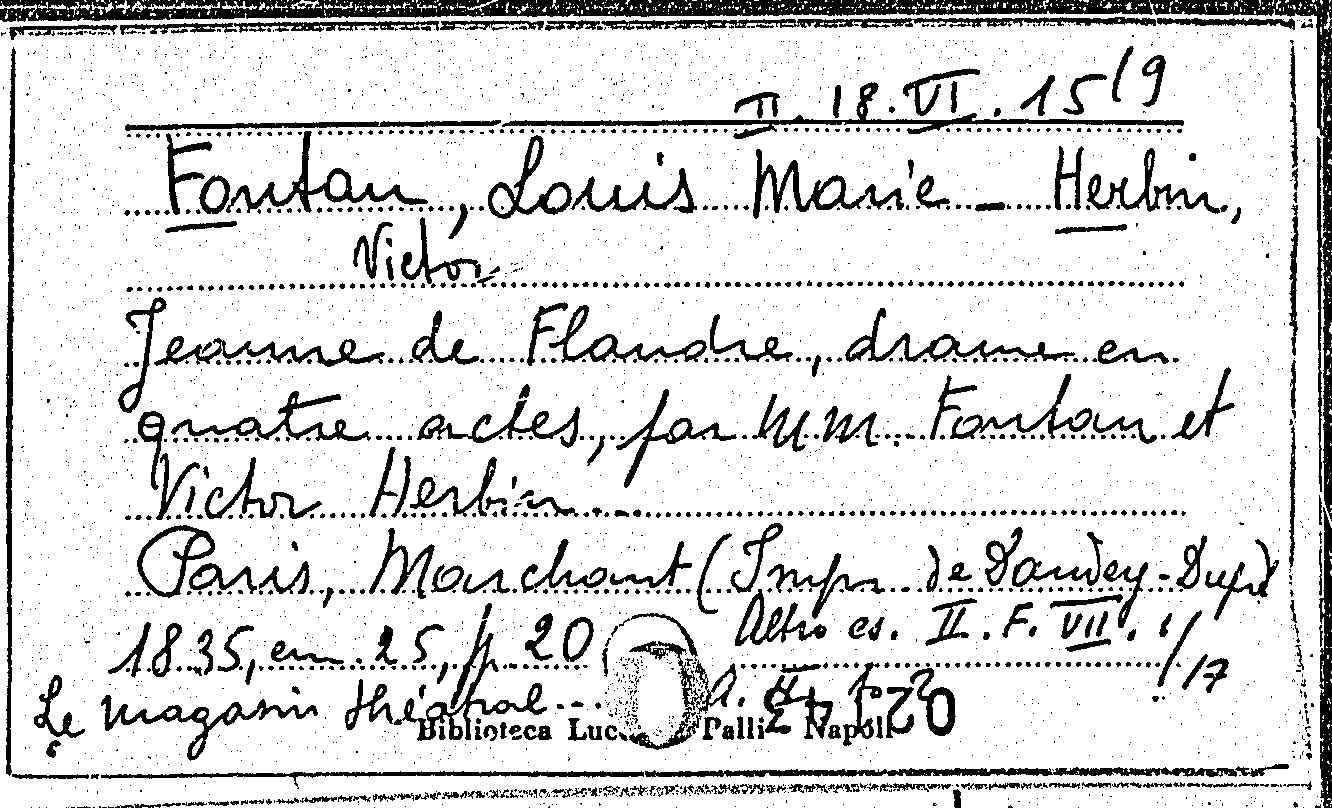 II. 18. VI. 15(9
Fontan, Louis Marie - Herbin,
Victor
Jeanne de Flandre, drame en
quatre actes, par MM. Fontan et
Victor Herbin...
Paris, Marchant (Impr. de Dondey-Dupré)
1835, cm. 25, p. 20
Altro es. II. F. VII. 1/17
Le magasin théâtral... A. II, to
Biblioteca Luc Palli Napoli